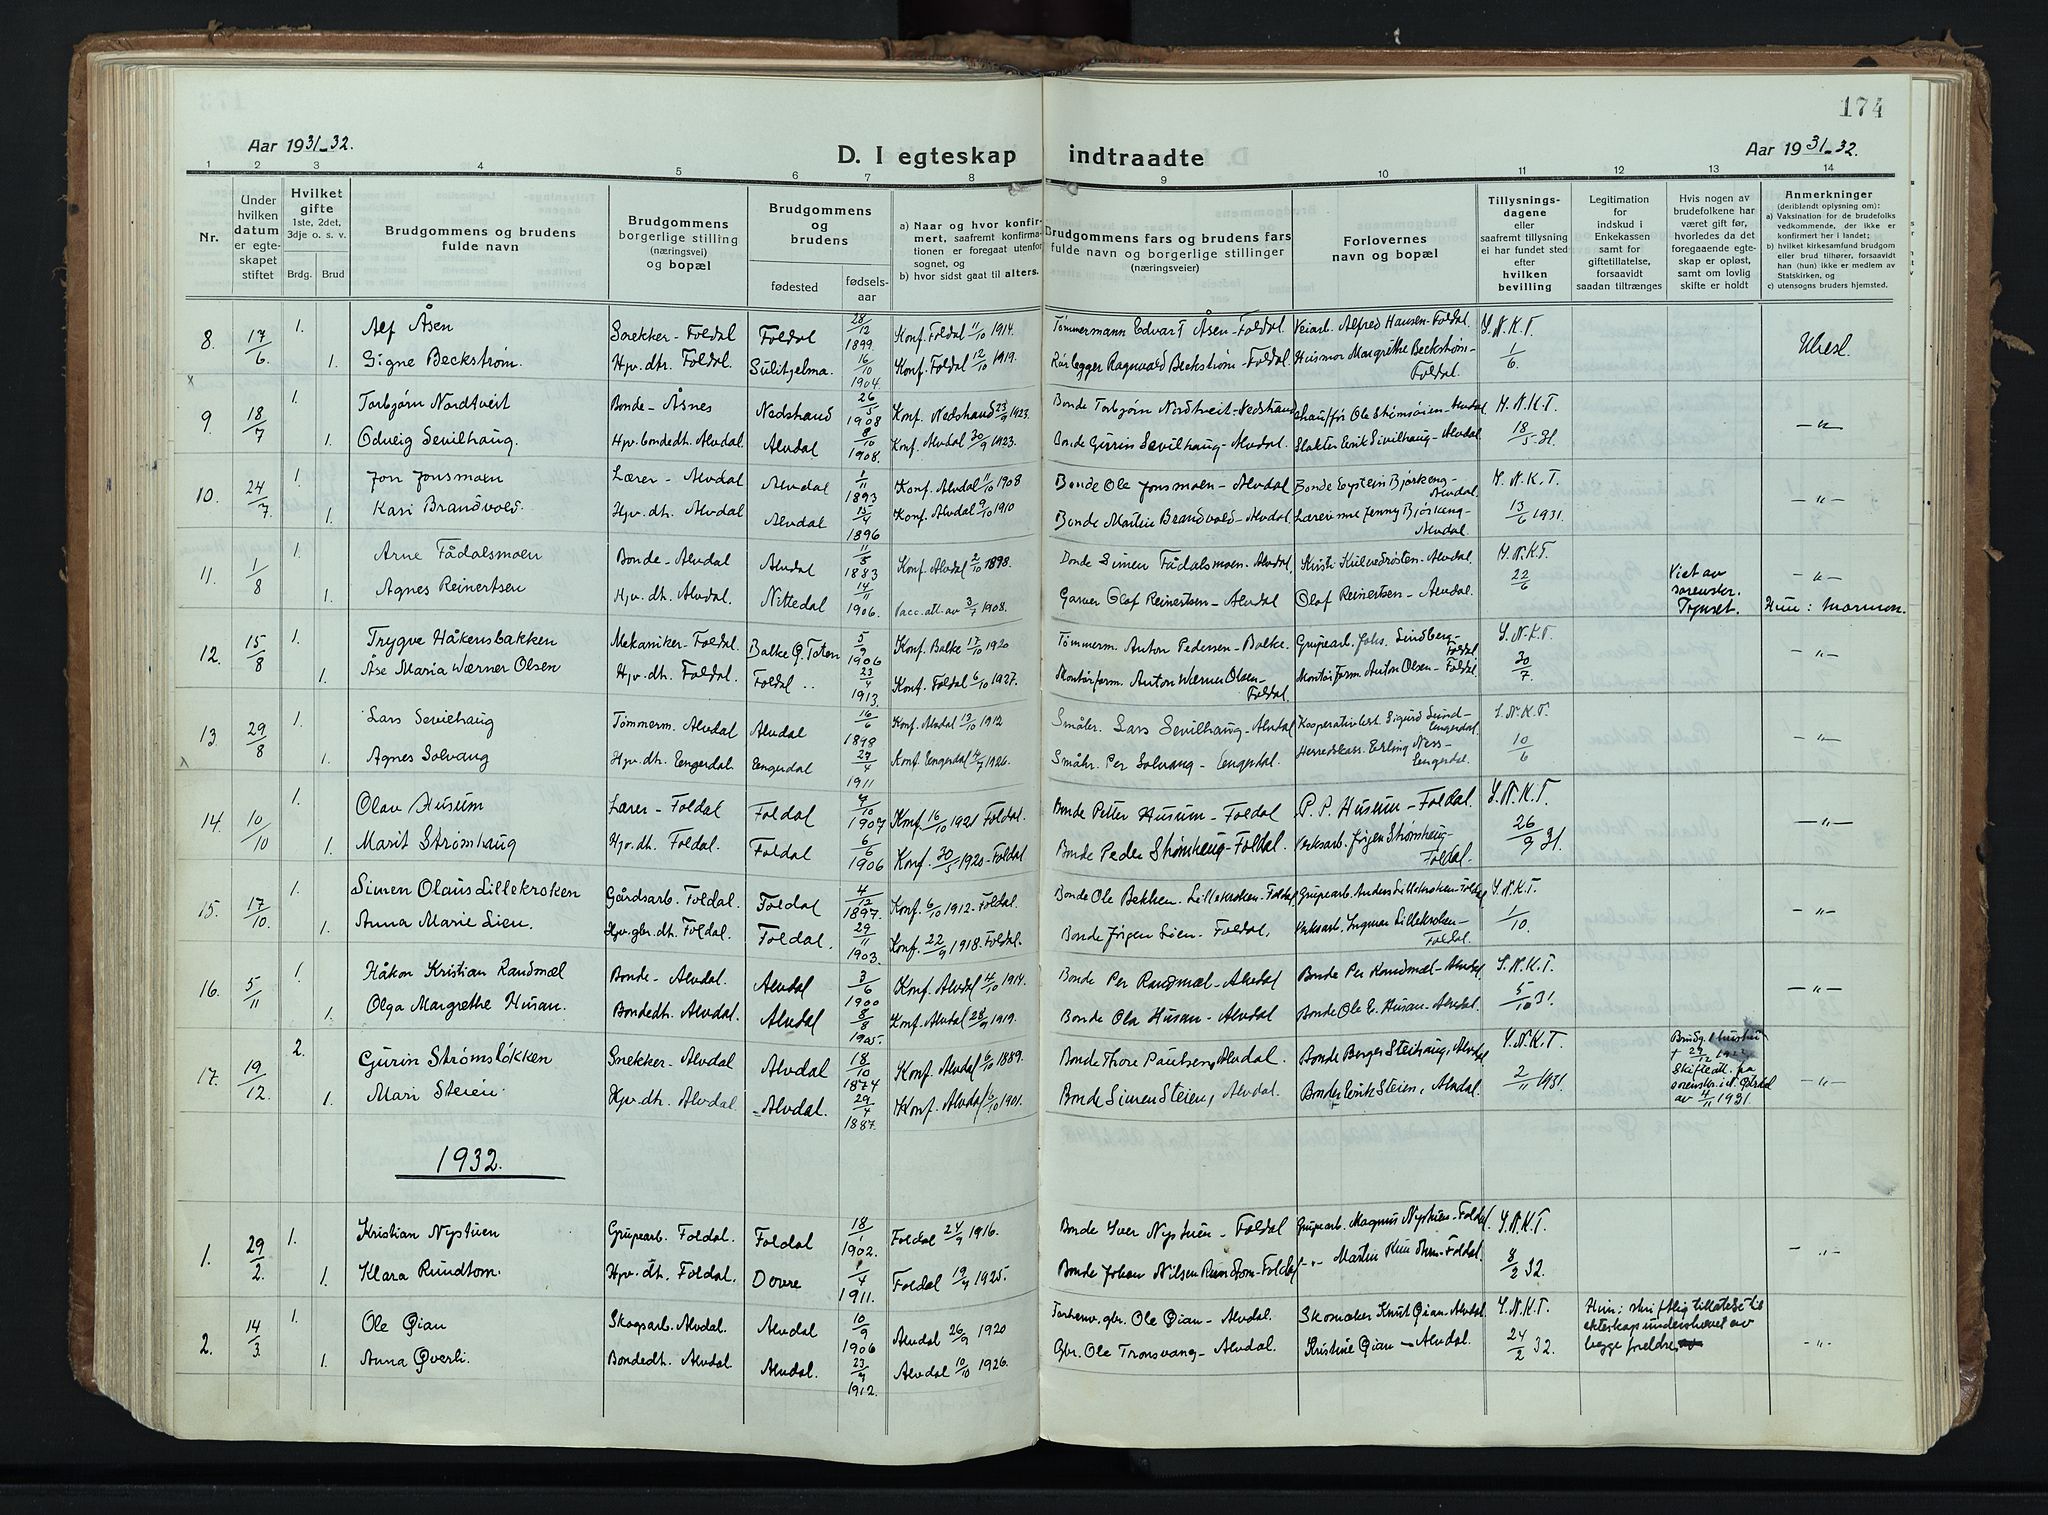 174
Aar 1931-32.
D. I egteskap indtraadte
Aar 1931-32.
1 2 3 4 5 6 7 8 9 10 11 12 13 14
Nr.
Under hvilken datum er egteskapet stiftet
Hvilket gifte 1ste, 2det, 3dje o. s. v.
Brdg. Brud
Brudgommens og brudens fulde navn
Brudgommens borgerlige stilling (næringsvei) og bopæl
Brudgommens og brudens
fødested
fødsels-aar
a) Naar og hvor konfirmert, saafremt konfirmationen er foregaat utenfor sognet, og
b) hvor sidst gaat til alters.
Brudgommens fars og brudens fars fulde navn og borgerlige stillinger (næringsveier)
Forlovernes navn og bopæl
Tillysningsdagene eller saafremt tillysning ei har fundet sted efter hvilken bevilling
Legitimation for indskud i Enkekassen samt for giftetillatelse, forsaavidt saadan tiltrænges
Hvis nogen av brudefolkene har været gift før, hvorledes da det foregaaende egteskap er opløst, samt om lovlig skifte er holdt
Anmerkninger (deriblandt oplysning om):
a) Vaksination for de brudefolks vedkommende, der ikke er konfirmert her i landet;
b) hvilket kirkesamfund brudgom eller brud tilhører, forsaavidt han (hun) ikke er medlem av Statskirken, og
c) utensogns bruders hjemsted.
8. 17/6 1. Alf Åsen Snekker - Foldal Foldal 28/12 1899. Konf. Foldal 11/10 1914. Tømmermann Edvart Åsen - Foldal. Veiarb. Alfred Hansen - Foldal. S.N.K.T. 1/6. Ubesl.
1. Signe Beckstrøm. Hjv. dtr. Foldal. Sulitjelma. 16/10 1904. Konf. Foldal 12/10 1919. Rørlegger Ragnvald Beckstrøm - Foldal. Husmor Margrethe Beckstrøm - Foldal.
9. 18/7 1. Torbjørn Nordtveit Bonde - Åsnes Nedstrand 26/5 1908 Konf. Nedstrand 23/9 1923. Bonde Torbjørn Nordtveit - Nedstrand Chauffør Ole Strømsøien - Alvdal S.N.K.T. 18/5 31. -"-
1. Odveig Sevilhaug. Hjv. bondedt. Alvdal. Alvdal 8/10 1908. Konf. Alvdal 30/9 1923. Bonde Gurin Sevilhaug - Alvdal. Slakter Eirik Sivilhaug - Alvdal.
10. 24/7 1. Jon Jonsmoen Lærer - Alvdal Alvdal 1/11 1893 Konf. Alvdal 11/10 1908 Bonde Ole Jonsmoen - Alvdal Bonde Eystein Bjørkeng - Alvdal. S.N.K.T. 13/6 1931. -"-
1. Kari Brandvold. Hjv. dt. Alvdal Alvdal 15/4 1896 Konf. Alvdal 9/10 1910 Bonde Martin Brandvold - Alvdal Lærerinne Jenny Bjørkeng - Alvdal
11. 1/8 1. Arne Fådalsmoen Bonde - Alvdal Alvdal 11/5 1883 Konf. Alvdal 2/10 1898. Bonde Simen Fådalsmoen - Alvdal Kristi Kulvedrøsten - Alvdal. S.N.K.T. 22/6 Viet av sorenskr. Tynset. -"-
1. Agnes Reinertsen Hjv. dt. Alvdal. Nittedal 14/11 1906. Vacc. att. av 3/7 1908. Garver Olaf Reinertsen - Alvdal Olaf Reinertsen - Alvdal. Hun: Mormon.
12. 15/8 1. Trygve Håkensbakken Mekaniker - Foldal. Balke Ø. Toten 5/9 1906 Konf. Balke 17/10 1920 Tømmerm. Anton Pedersen - Balke. Grupearb. Johs. Lindberg - Foldal S.N.K.T. 30/7 -"-
1. Åse Maria Wærner Olsen Hjv. dt. Foldal. Foldal 23/4 1913. Konf. Foldal 6/10 1927. Montørform. Anton Wærner Olsen - Foldal. Montørform. Anton Olsen - Foldal
13. 29/8 1. Lars Sevilhaug Tømmerm. Alvdal Alvdal 16/6 1898 Konf. Alvdal 13/10 1912 Småbr. Lars Sevilhaug - Alvdal Kooperativbest. Sigurd Lund - Engerdal S.N.K.T. 10/6 -"-
1. Agnes Solvang Hjv. dt. Engerdal. Engerdal 27/4 1911 Konf. Engerdal 4/7 1926. Småbr. Per Solvang - Engerdal. Herredskass. Erling Ness - Engerdal.
14. 10/10 1. Olav Husum Lærer - Foldal Foldal 9/10 1907 Konf. 16/10 1921 Foldal. Bonde Petter Husum - Foldal P. P. Husum - Foldal. S.N.K.T. 26/9 31. -"-
1. Marit Strømhaug Hjv. dt. Foldal. Foldal 6/6 1906 Konf. 30/5 1920 - Foldal Bonde Peder Strømhaug - Foldal. Verksarb. Jørgen Strømhaug - Foldal.
15. 17/10 1. Simen Olaus Lillekroken Gårdsarb. Foldal. Foldal 4/12 1897. Konf. 6/10 1912 - Foldal. Bonde Ole Bekken Lillekroken - Foldal Grupearb. Anders Lillekroken - Foldal S.N.K.T. 1/10. -"-
1. Anna Marie Lien. Hjv. gbr. dt. Foldal. Foldal. 29/11 1903. Konf. 22/9 1918. Foldal. Bonde Jørgen Lien - Foldal. Verksarb. Ingmar Lillekroken - Foldal.
16. 5/11 1. Håkon Kristian Randmæl Bonde - Alvdal. Alvdal 3/6 1900 Konf. Alvdal 4/10 1914. Bonde Per Randmæl - Alvdal Bonde Per Randmæl - Alvdal S.N.K.T. 5/10 31. -"-
1. Olga Margrethe Husan. Bondedt. Alvdal. Alvdal 8/8 1905. Konf. Alvdal 28/9 1919. Bonde Ola Husan - Alvdal Bonde Ole E. Husan - Alvdal.
17. 19/12 2. Gurin Strømsløkken Snekker - Alvdal Alvdal 18/10 1874 Konf. Alvdal 6/10 1889. Bonde Thore Paulsen, Alvdal. Bonde Berger Steihaug, Alvdal S.N.K.T. 2/11 1931. Brudg. 1 hustru † 29/12 Skifteatt. på sorenskr. i N. Østerdal av 4/11 1931. -"-
1. Mari Steien. Hjv. dt. Alvdal -Alvdal. 29/4 1887. Konf. Alvdal 6/10 1901. Bonde Simen Steien, Alvdal. Bonde Eirik Steien, Alvdal.
1932.
1. 29/2. 1. Kristian Nystuen Grupearb. Foldal. Foldal 18/1 1902. Foldal 24/9 1916. Bonde Iver Nystuen - Foldal Grupearb. Magnus Nystuen - Foldal. S.N.K.T. 8/2 32. -"-
1. Klara Rundtom. Hjv. dt. Foldal. Dovre 1/4 1911. Foldal 19/9 1925. Bonde Johan Nilsen Rundtom - Foldal -"- Martin Rundtom - Foldal.
2. 14/3. 1. Ole Qian Skogsarb. Alvdal. Alvdal 10/9 1906 Alvdal 26/9 1920 Forhenv. gbr. Ole Qian - Alvdal. Skomaker Knut Qian - Alvdal S.N.K.T. 24/2 32. Hun: skriftlig tillatelse til ekteskap underskrevet av begge foreldre. -"-
1. Anna Øverli. Bondedt. Alvdal. Alvdal. 23/4 1912. Alvdal 10/10 1926. Gbr. Ole Tronsvang - Alvdal. Kristine Qian - Alvdal.